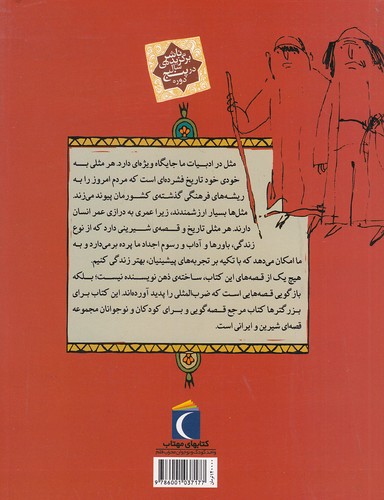 ناشر
برگزیده‌ی
سال
در پنج
دوره
مثل در ادبیات ما جایگاه ویژه‌ای دارد. هر مثلی به
خودی خود تاریخ فشرده‌ای است که مردم امروز را به
ریشه‌های فرهنگی گذشته‌ی کشورمان پیوند می‌زند.
مثل‌ها بسیار ارزشمندند، زیرا عمری به درازی عمر انسان
دارند. هر مثلی تاریخ و قصه‌ی شیرینی دارد که از نوع
زندگی، باورها و آداب و رسوم اجداد ما پرده برمی‌دارد و به
ما امکان می‌دهد که با تکیه بر تجربه‌های پیشینیان، بهتر زندگی کنیم.
هیچ یک از قصه‌های این کتاب، ساخته‌ی ذهن نویسنده نیست؛ بلکه
بازگویی قصه‌هایی است که ضرب‌المثلی را پدید آورده‌اند. این کتاب برای
بزرگترها کتاب مرجع قصه‌گویی و برای کودکان و نوجوانان مجموعه
قصه‌ای شیرین و ایرانی است.
کتابهای مهتاب
9 786001 037177